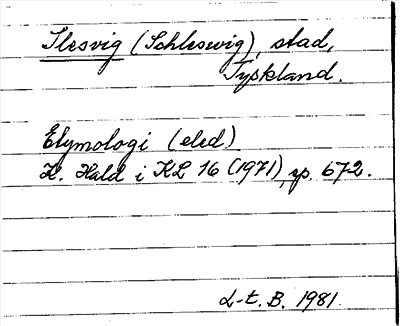 Slesvig (Schleswig), stad,
Tyskland.
Etymologi (eled)
K. Hald i KL 16 (1971), sp. 672.
L-t. B. 1981.